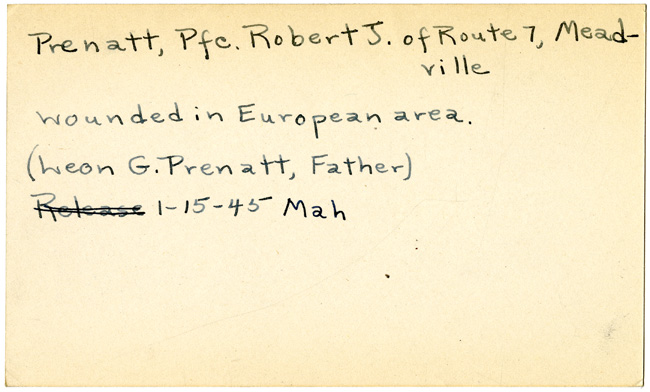 Prenatt, Pfc. Robert J. of Route 7, Mead-
ville
wounded in European area.
(Leon G. Prenatt, Father)
Release 1-15-45 Mah